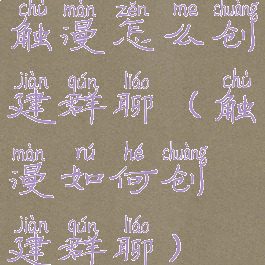 chù màn zěn me chuàng
触漫怎么创
jiàn qún liáo chù
建群聊(触
màn rú hé chuàng
漫如何创
jiàn qún liáo
建群聊)